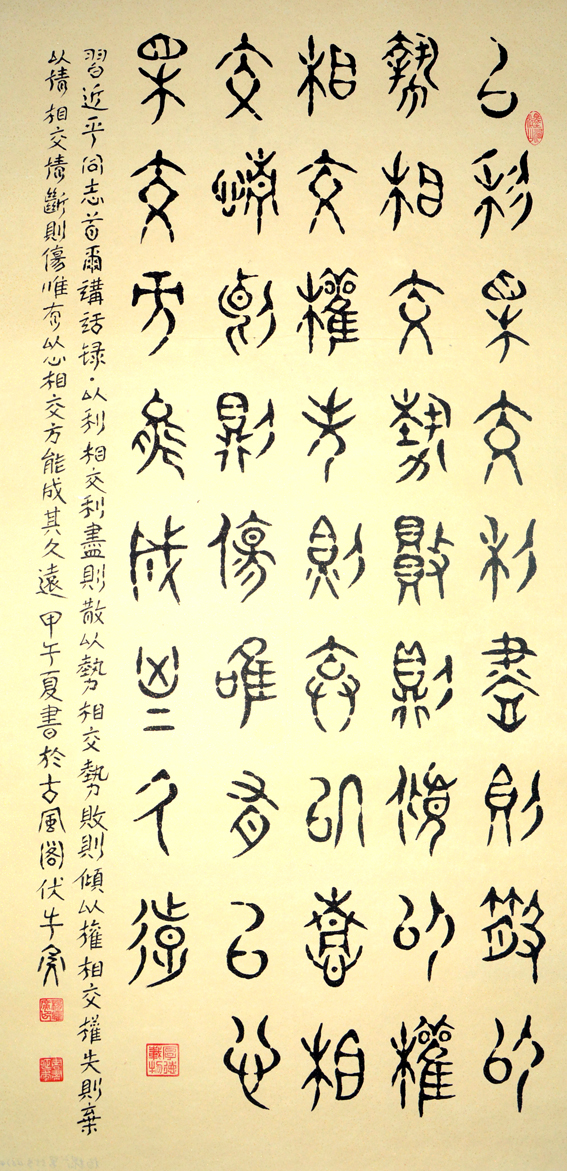 以利相交利盡則散以
勢相交勢敗則傾以權
相交權失則棄以情相
交情斷則傷唯有以心
相交方能成其久遠
習近平同志首爾講話錄·以利相交利盡則散以勢相交勢敗則傾以權相交權失則棄
以情相交情斷則傷唯有以心相交方能成其久遠甲午夏書於古風閣伏牛
厚德載物